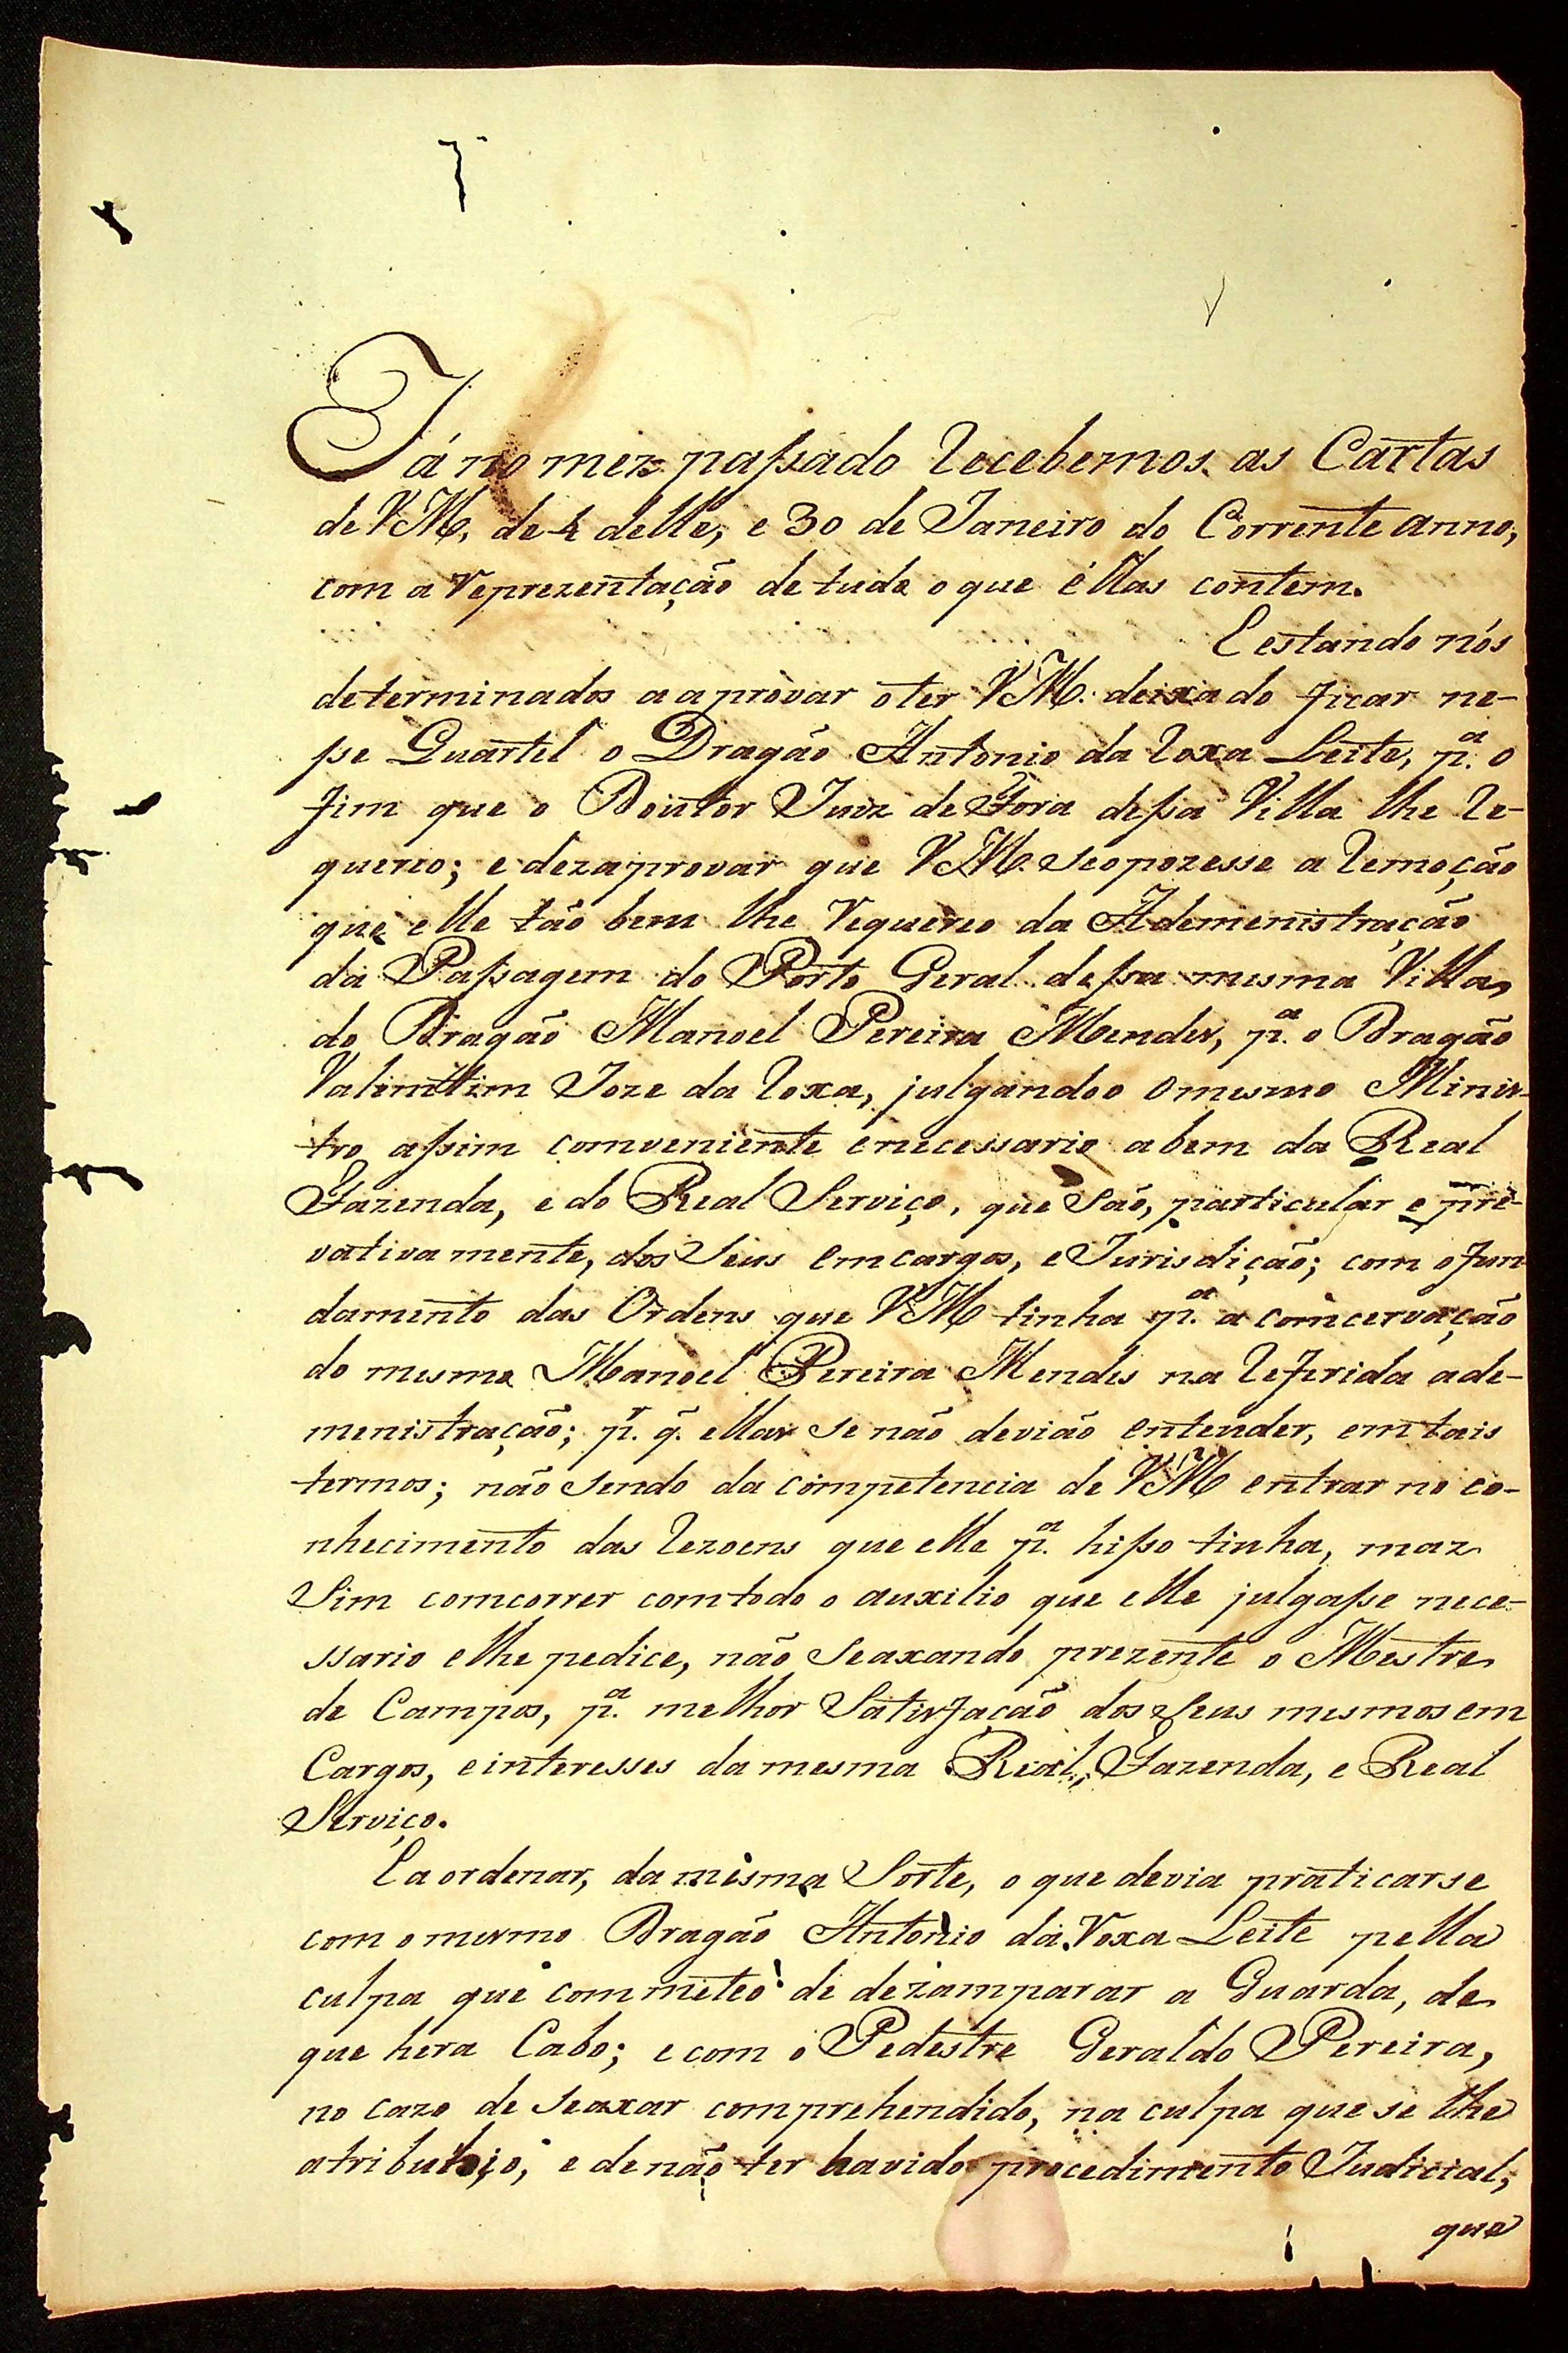 Já no mez passado Recebemos as Cartas
de VM. de 4 delle, e 30 de Janeiro do Corrente anno,
com a Reprezentação de tudo o que éllas contem.
E estando nós
determinados a aprovar o ter VM. deixado ficar ne-
sse Quartel o Dragão Antonio da Roxa Leite, p.ª o
fim que o Doutor Juiz de Fora dessa Villa lhe Re-
quereo; e dezaprovar que VM. se opozesse a Remoção
que elle tão bem lhe Requereo da Ademenistração
da Passagem do Porto Geral dessa mesma Villa,
do Dragão Manoel Pereira Mendes, p.ª o Dragão
Valimttim Joze da Roxa, julgandoo o mesmo Minis-
tro assim comveniente e necessario a bem da Real
Fazenda, e do Real Serviço, que São, particular e pre-
vativamente, dos Seus emcargos, e Jurisdição; com o fun
damento das Ordens que VM tinha p.ª a comcervação
do mesmo Manoel Pereira Mendes na Referida ade-
menistração; p.r q̃. ellas Se não devião entender, em tais
termos; não Sendo da competencia de VM entrar no co-
nhecimento das Rezoens que elle p.ª hisso tinha, maz
Sim comcorrer com todo o auxilio que elle julgasse nece-
ssario e lhe pedice, não Se axando prezente o Mestre
de Campos, p.ª melhor Satisfação dos Seus mesmos em
Cargos, e interesses da mesma Real Fazenda, e Real
Serviço.
E a ordenar, da mesma Sorte, o que devia praticarse
com o mesmo Dragão Antonio da Roxa Leite pella
culpa que commeteo de dezamparar a Guarda, de
que hera Cabo; e com o Pedestre Geraldo Pereira,
no cazo de Se axar comprehendido, na culpa que se lhe
e de não ter havido procedimento Judicial,
que